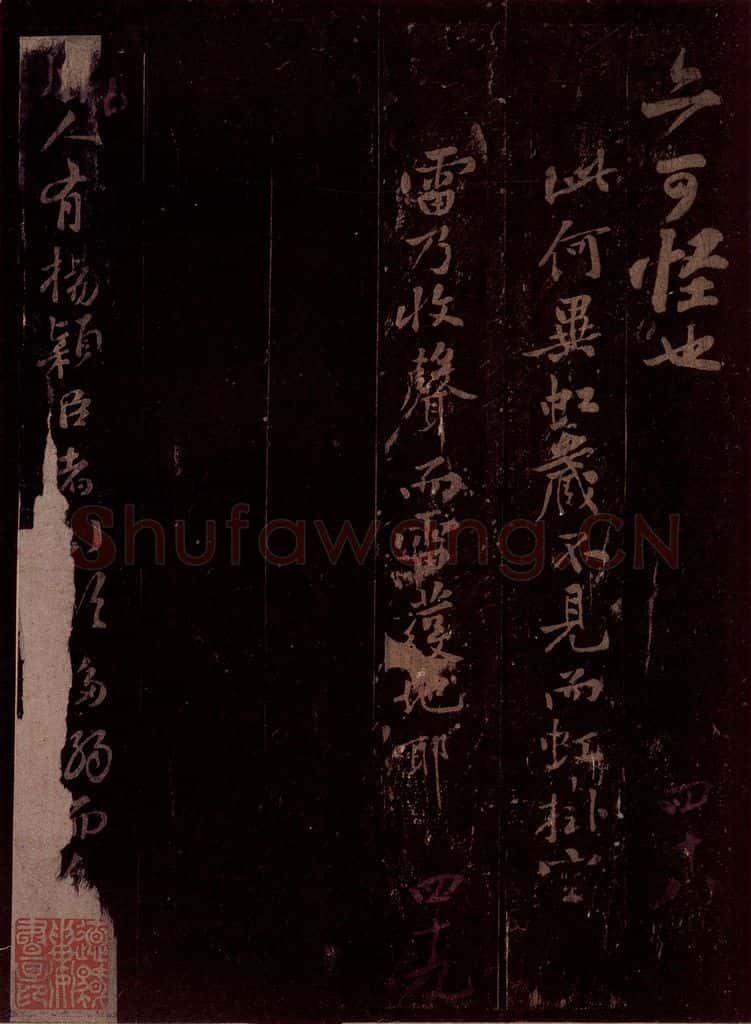 亦可怪也
此何異虹藏不見而虹掛空
四十八
雷乃收聲而雷發地耶
四十九
人有楊穎臣者 多弱而
Shufawang.CN